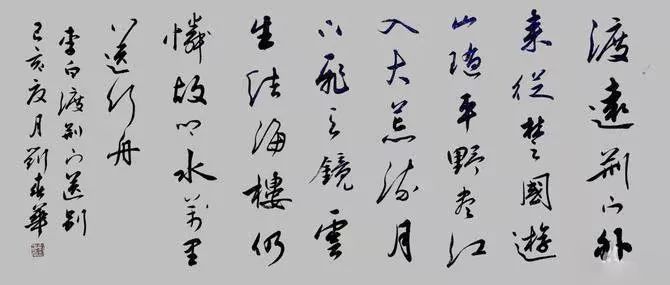 渡遠荆門外
来從楚國遊
山随平野尽江
入大荒流月
下飛天鏡雲
生结海樓仍
憐故乡水萬里
送行舟
李白渡荆門送别
己亥夏月劉春華